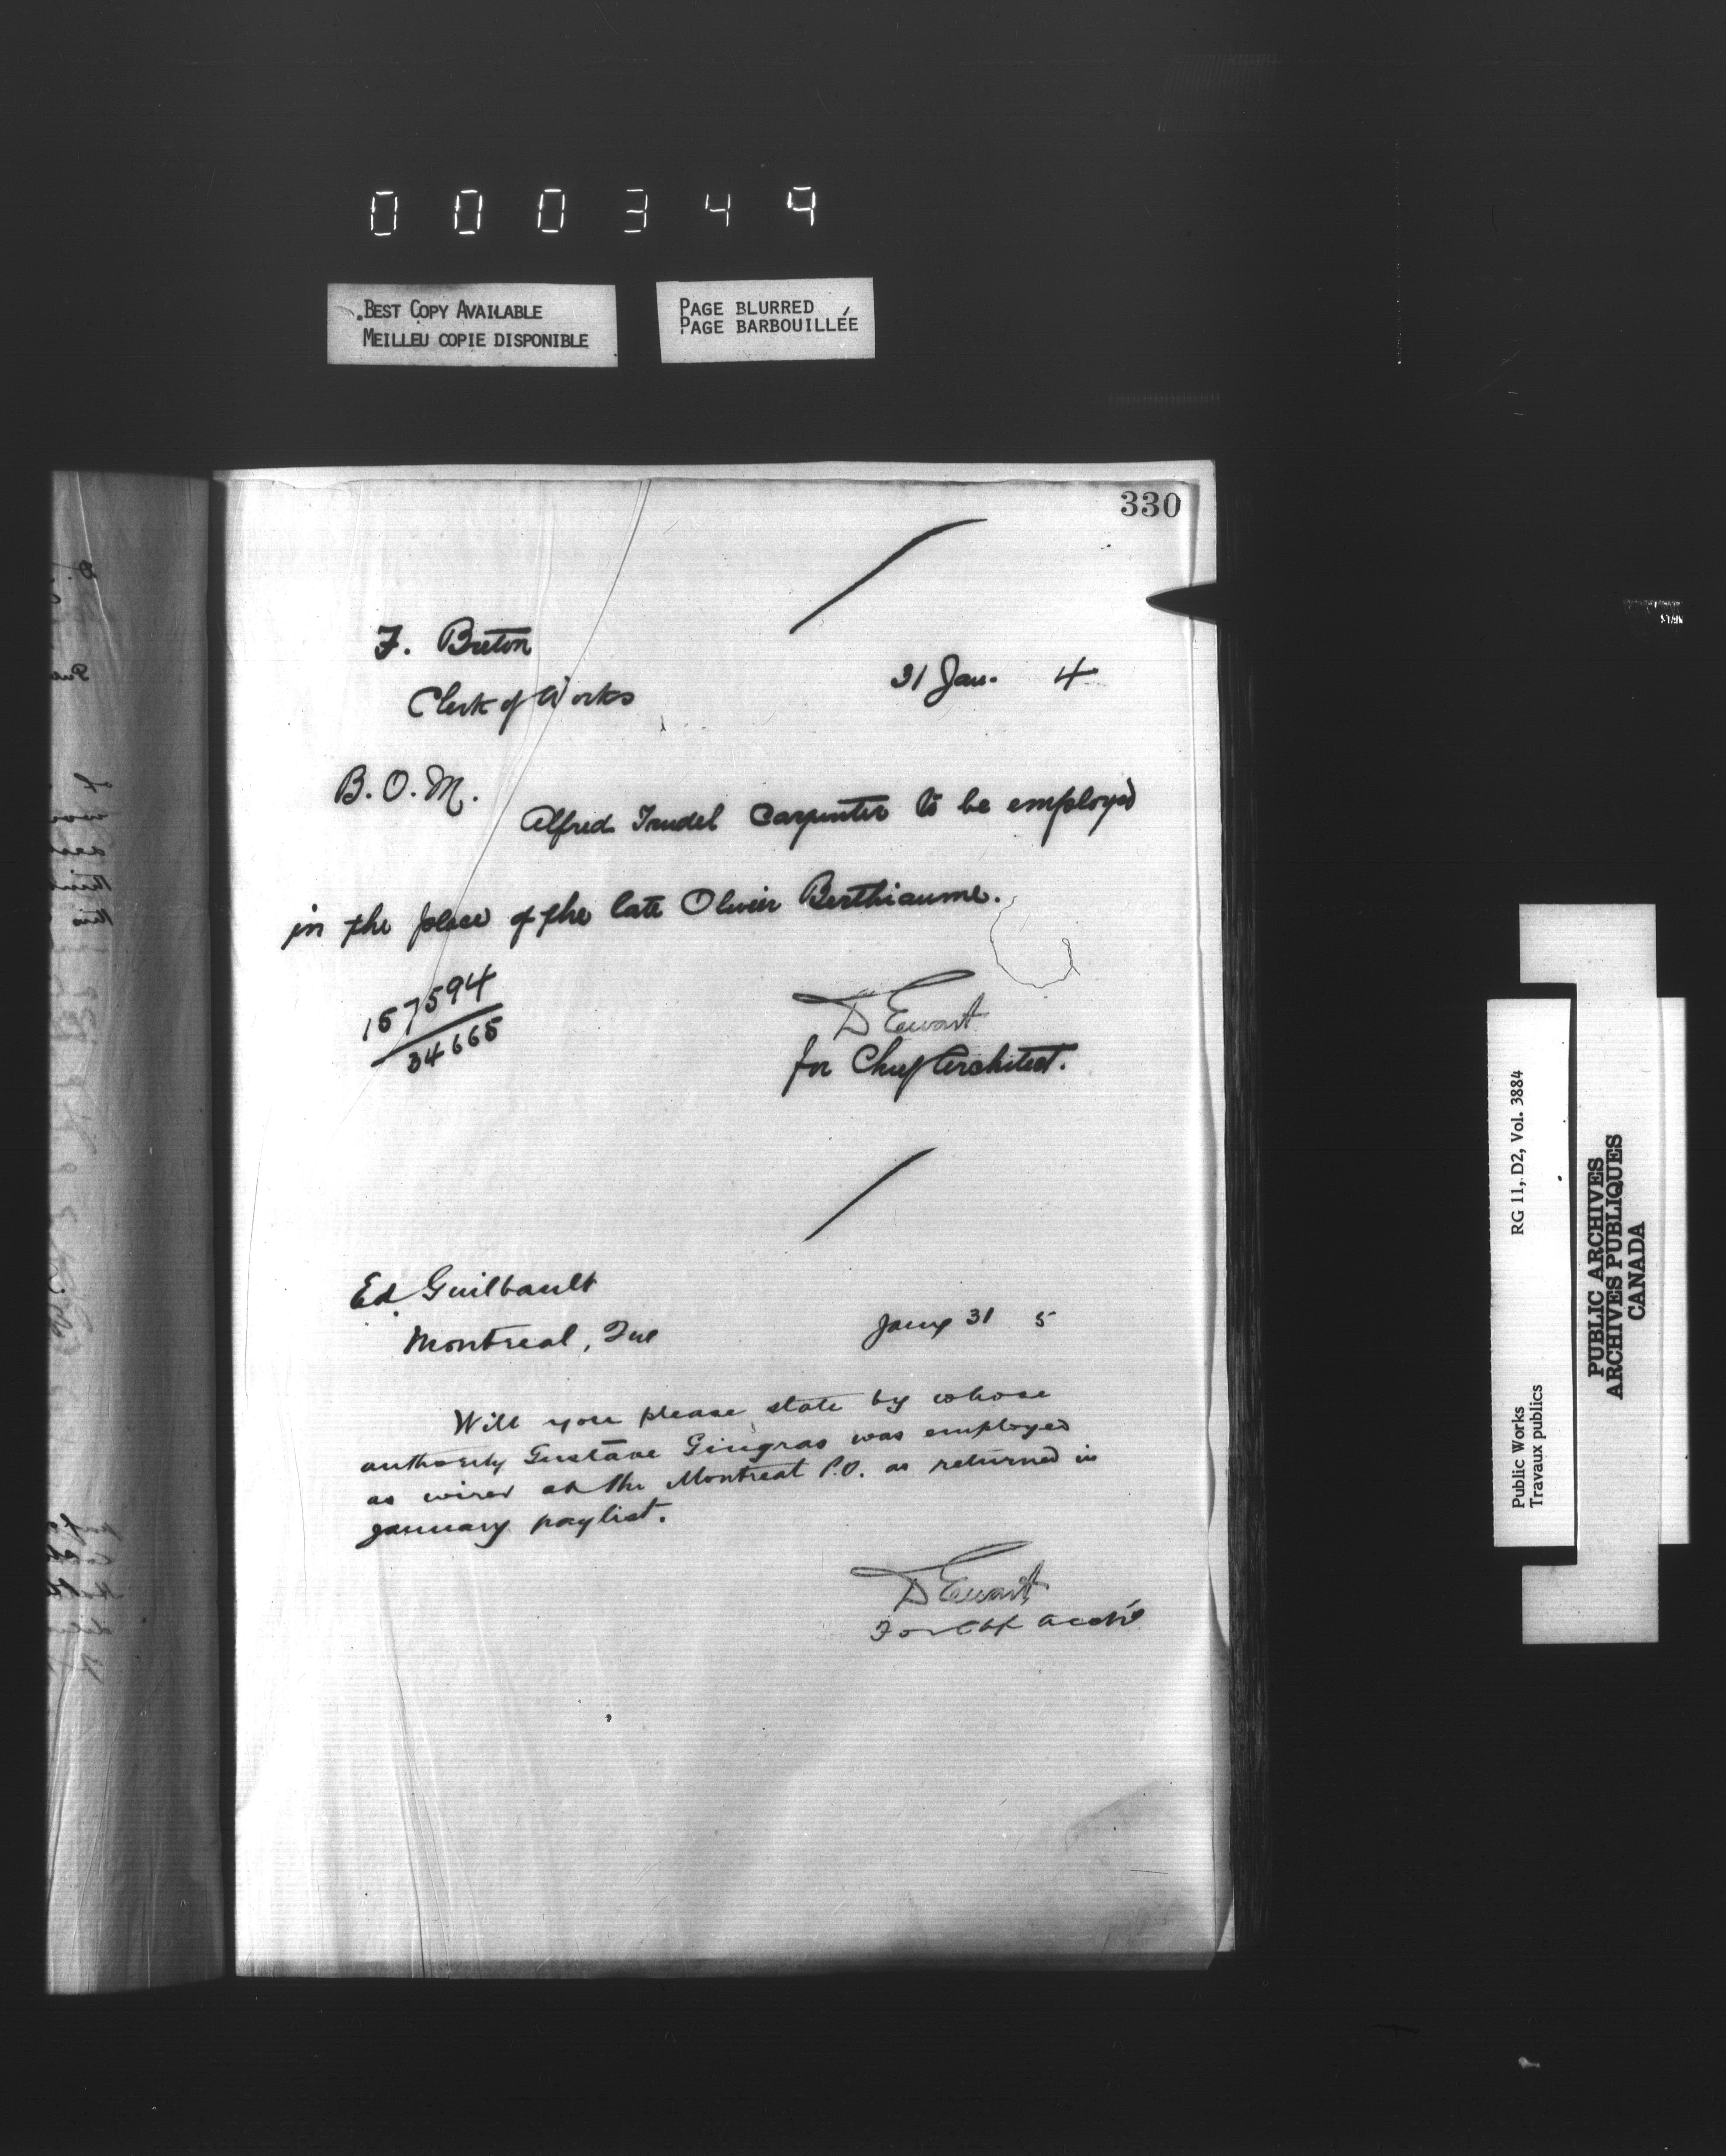 000349
BEST COPY AVAILABLE
MEILLEU COPIE DISPONIBLE
PAGE BLURRED
PAGE BARBOUILLÉE
330
F. Breton
Clerk of Works
31 Jan. 4
B.O.M.
Alfred Trudel Carpenter to be employed
in the place of the late Olivier Berthiaume.
157594
34665
D Ewart
for Chief Architect.
Ed Guilbault
Montreal, Que
Jany 31 5
Will you please state by whose
authority Gustave Gingras was employed
as wirer at the Montreal P.O. as returned in
January paylist.
D Ewart
For Chf
RG 11, D2, Vol. 3884
Public Works
Travaux publics
PUBLIC ARCHIVES
ARCHIVES PUBLIQUES
CANADA